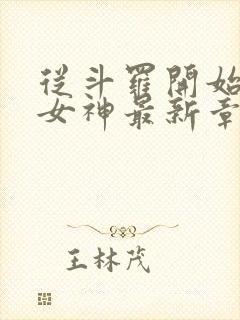 從斗羅開始
女神最新章
王林茂